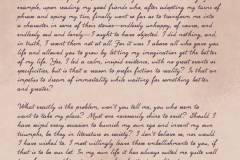 example, upon reading my good friends who, after adopting my turns of
phrase and aping my tics, finally went so far as to transform me into
a character in some of their stories—endlessly unhappy, of course, and
endlessly sad and lonely—I ought to have objected. I did nothing, and,
in truth, I want them not at all. Yet it was I above all who gave you
life and allowed you to grow by letting my imagination get the better
of my life. Yes, I led a calm, insipid existence, with no great events or
specificities, but is that a reason to prefer fiction to reality? Is that an
impetus to dream of immortality while waiting for something better
and greater?
What exactly is the problem, won't you tell me, you who seem to
want to take my place? Must one necessarily shine to exist? Should I
have seized every occasion to banish my own ego and invent my own
triumphs, be they in literature or society? I don't believe so, nor would
I have wished to. I most willingly leave these embellishments to you, if
that is to be our lot. In my own life it has always suited me quite well